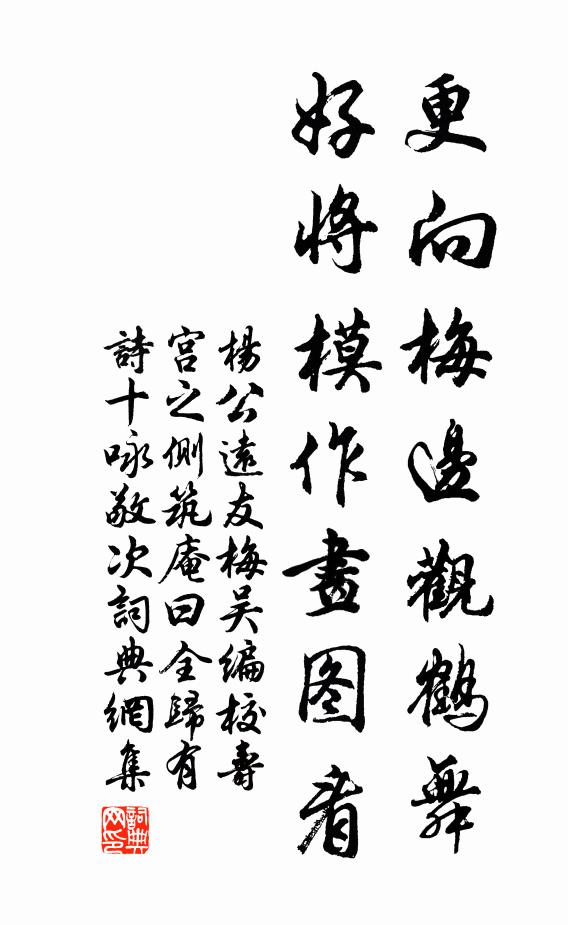 更向梅邊觀鶴舞
好將模作畫图看
楊公遠友梅吴编校壽
宫之側筑庵曰全歸有
詩十咏敬次詞典網集
詞典网印